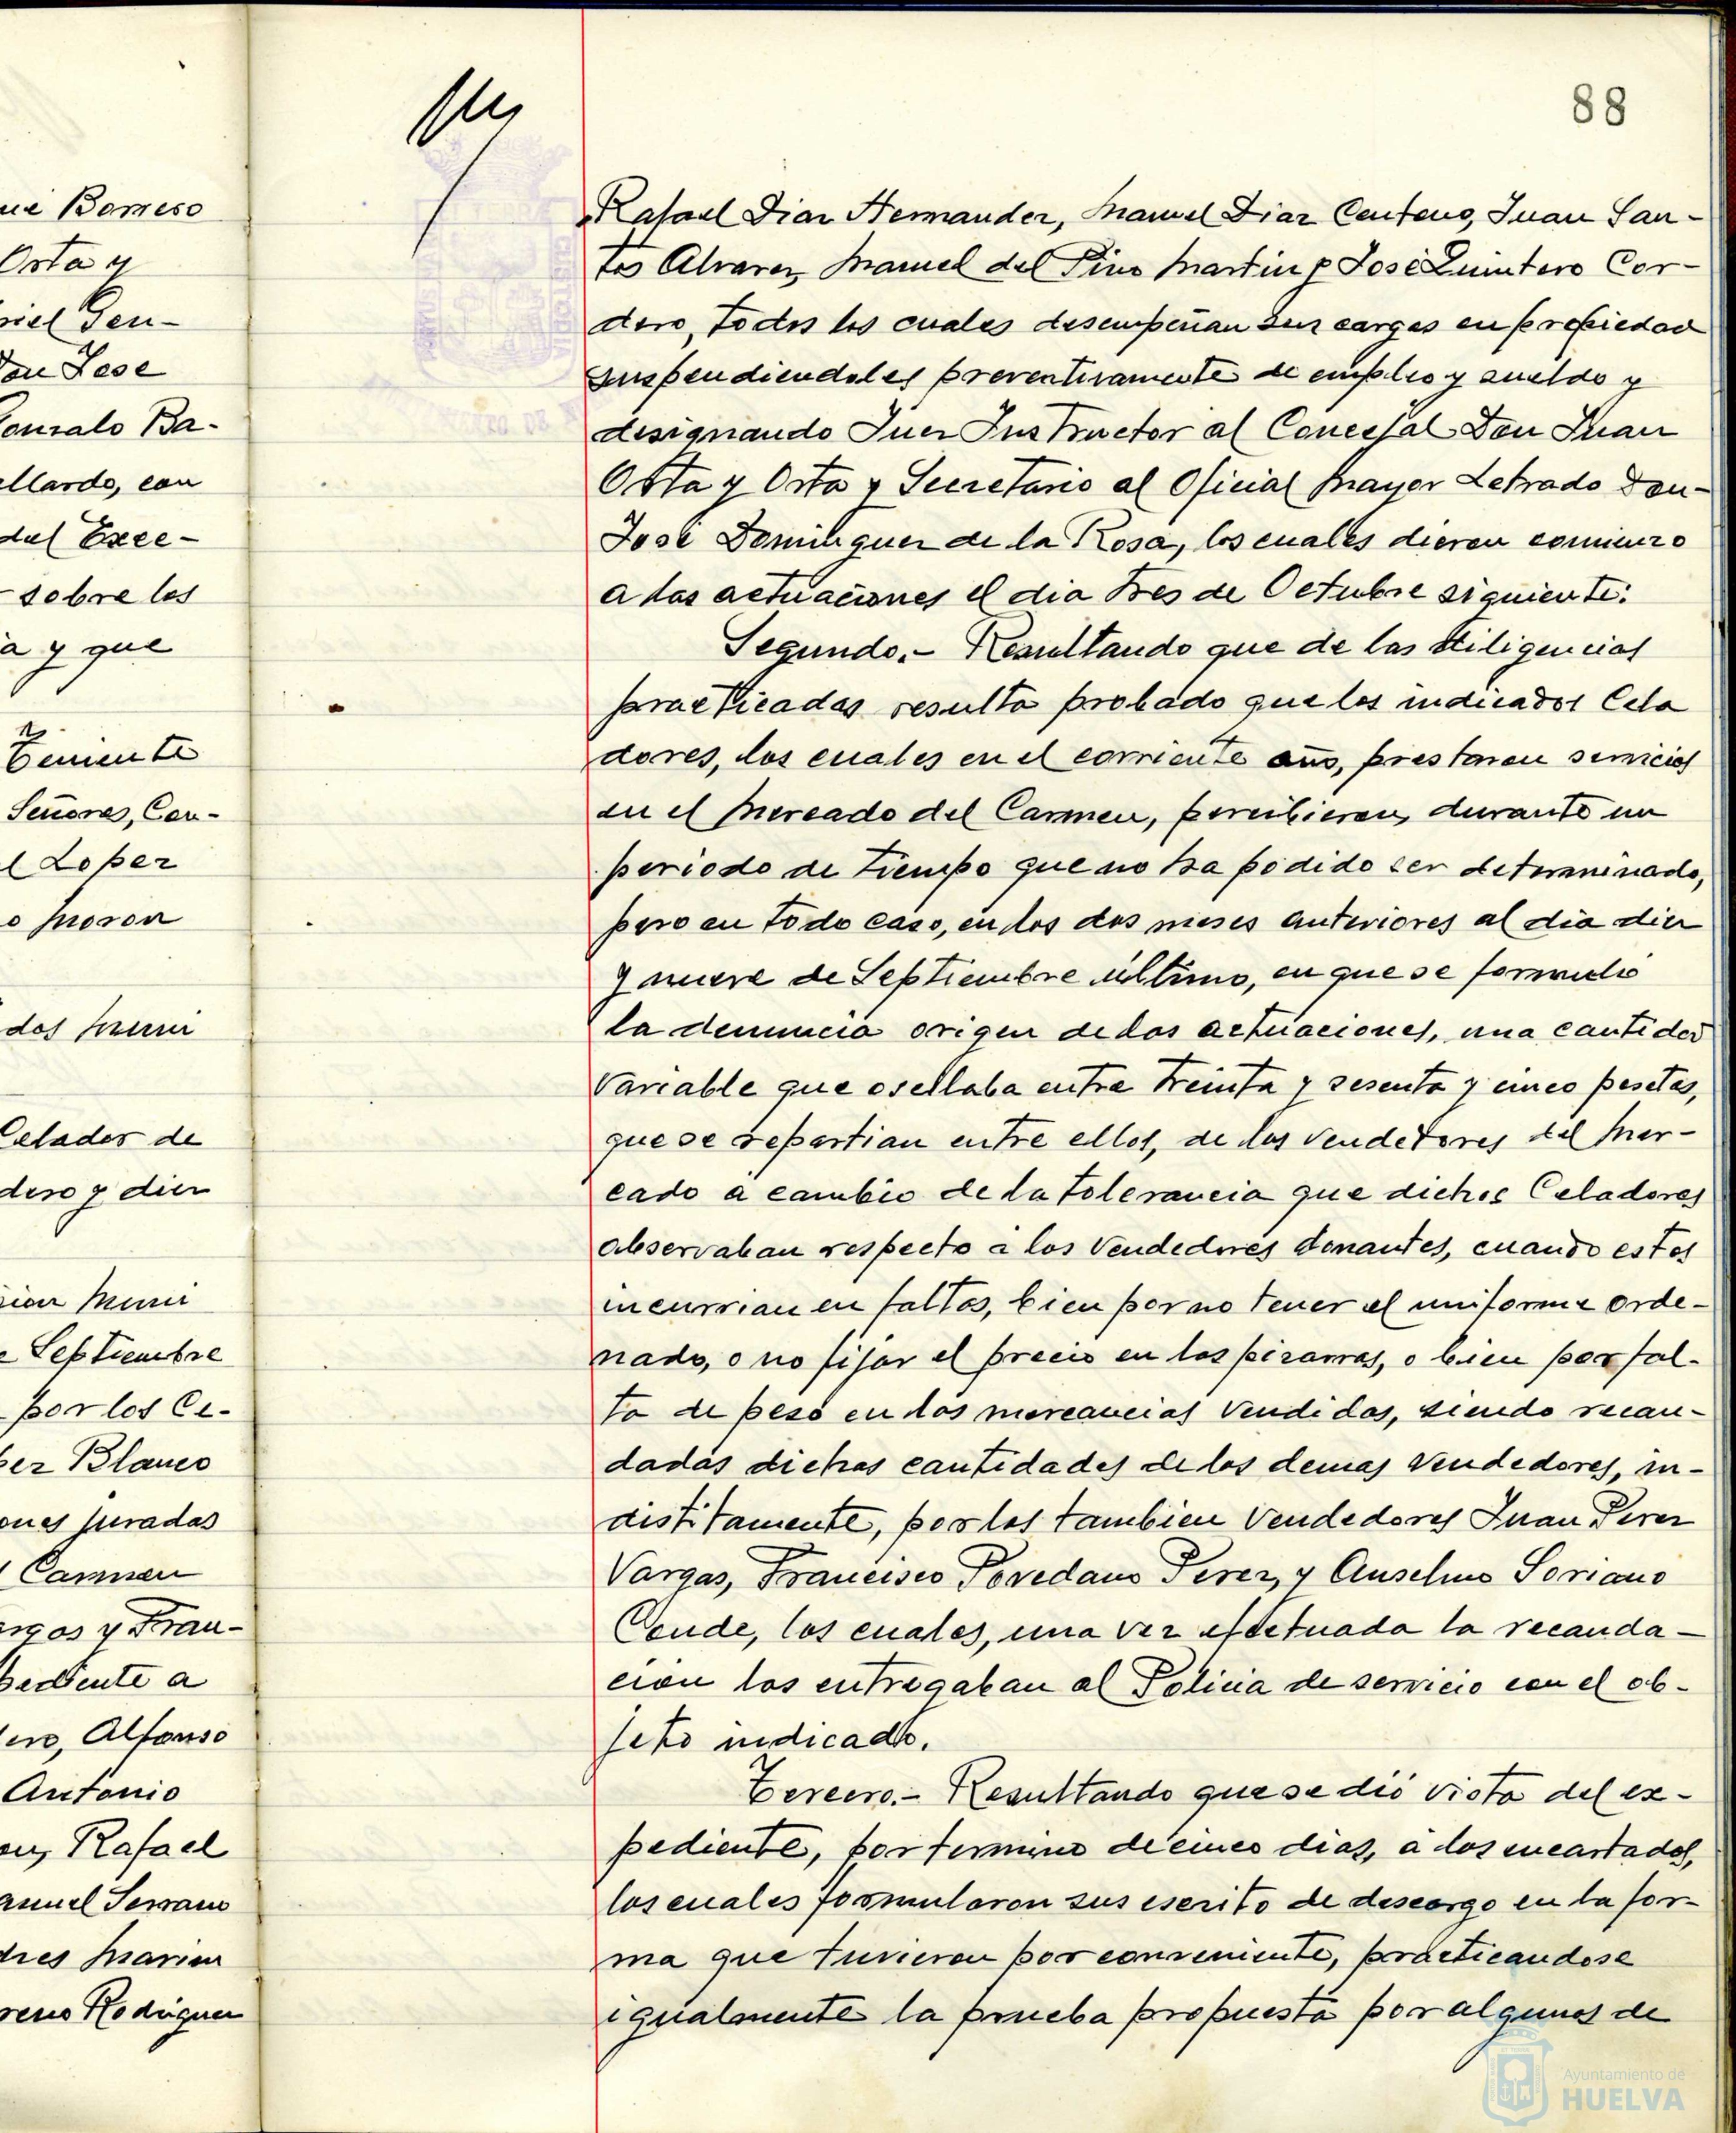 ue Borrero
Orta y
niel Gen-
Don Jose
Gonzalo Ba-
llardo, con
del Exce-
- sobre los
a y que
Teniente
Señores, Con-
l Lopez
o Moron
dos Muni
Celador de
dero y diez
cion Muni
e Septiembre
por los Ce-
Blanco
ones juradas
l Carmen
argas y Fran-
pediente a
ero, Alfonso
Antonio
on, Rafael
anuel Serrano
dres Marin
reno Rodriguez
88
Rafael Diaz Hernandez, Manuel Diaz Centeno, Juan San-
tos Alvarez, Manuel del Pino Martin y José Quintero Cor-
dero, todos los cuales desempeñan sus cargos en propiedad
suspendiendoles preventivamente de empleo y sueldo y
designando Juez Instructor al Concejal Don Juan
Orta y Orta y Secretario al Oficial Mayor Letrado Don-
José Dominguez de la Rosa, los cuales dieron comienzo
a las actuaciones el dia tres de Octubre siguiente:
Segundo.- Resultando que de las diligencias
practicadas resulta probado que los indicados Cela
dores, los cuales en el corriente año, prestaron servicios
en el Mercado del Carmen, percibieron, durante un
periodo de tiempo que no ha podido ser determinado,
pero en todo caso, en los dos meses anteriores al dia diez
y nueve de Septiembre último, en que se formuló
la denuncia origen de las actuaciones, una cantidad
variable que oscilaba entre treinta y sesenta y cinco pesetas,
que se repartian entre ellos, de los vendedores del Mer-
cado a cambio de la tolerancia que dichos Celadores
observaban respecto a los vendedores donantes, cuando estos
incurrian en faltas, bien por no tener el uniforme orde-
nado, o no fijar el precio en las pizarras, o bien por fal-
ta de peso en las mercancias vendidas, siendo recau-
dadas dichas cantidades de los demas vendedores, in-
distitamente, por los tambien Vendedores Juan Perez
Vargas, Francisco Povedano Perez, y Anselmo Soriano
Conde, los cuales, una vez efectuada la recauda-
cion las entregaban al Policia de servicio con el ob-
jeto indicado.
Tercero.- Resultando que se dió vista del ex-
pediente, por termino de cinco dias, a los encartados,
los cuales formularon sus escrito de descargo en la for-
ma que tuvieron por conveniente, practicandose
igualmente la prueba propuesta por algunos de
Ayuntamiento de
HUELVA